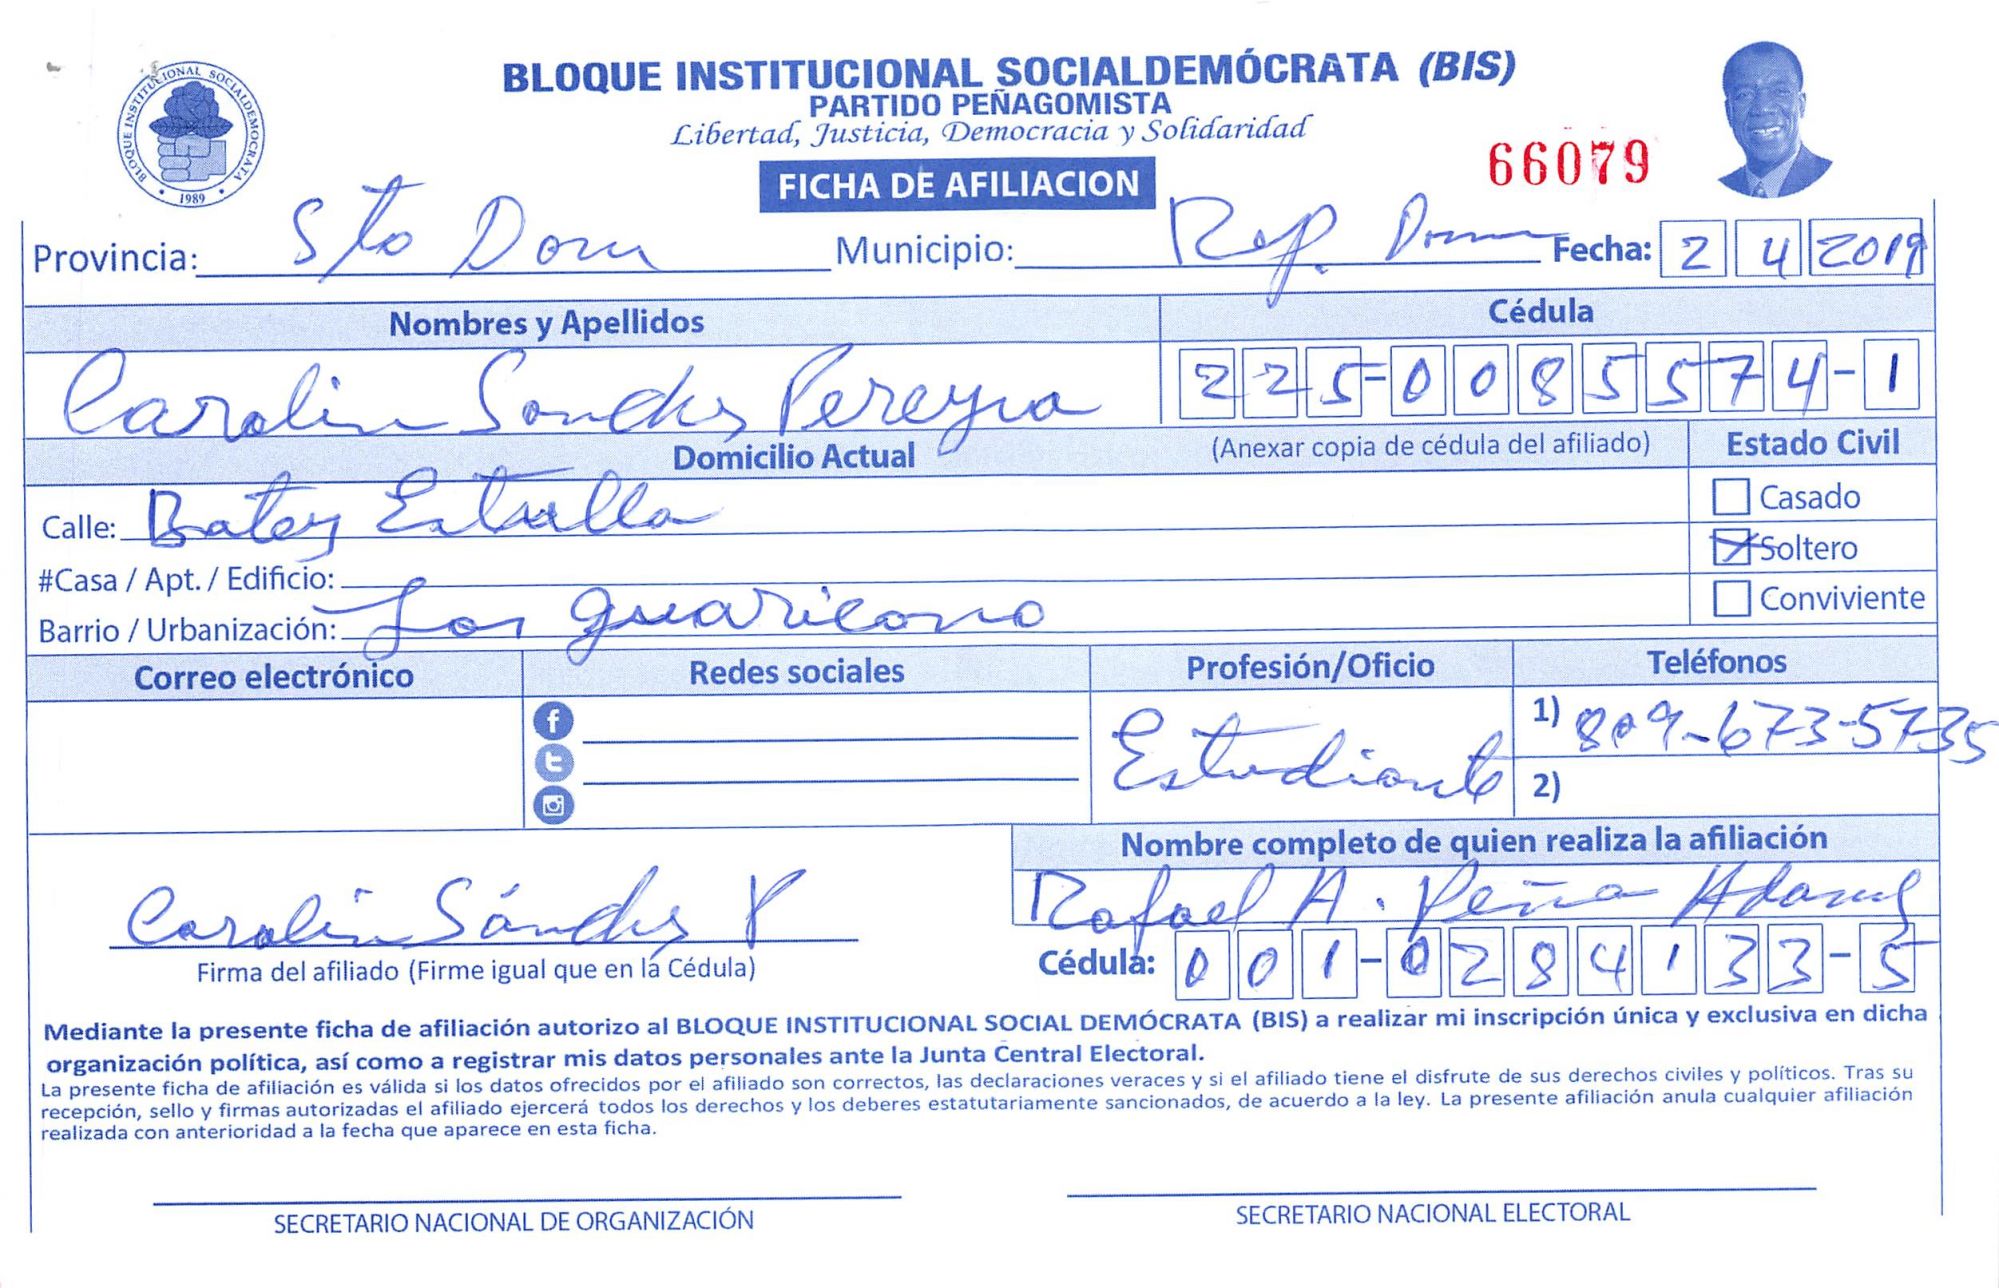 BLOQUE INSTITUCIONAL SOCIALDEMÓCRATA (BIS)
PARTIDO PEÑAGOMISTA
Libertad, Justicia, Democracia y Solidaridad
FICHA DE AFILIACION
66079
BLOQUE INSTITUCIONAL SOCIALDEMOCRATA
1989
Provincia: Sto Dom Municipio: Rep. Dom Fecha: 2 4 2019
Nombres y Apellidos Cédula
Carolin Sanches Pereyra 225-0085574-1
Domicilio Actual (Anexar copia de cédula del afiliado) Estado Civil
Calle: Batey Estrella
Casado
Soltero
#Casa / Apt. / Edificio:
Conviviente
Barrio / Urbanización: Los guaricano
Correo electrónico Redes sociales Profesión/Oficio Teléfonos
Estudiante 1) 809-673-5735
2)
Nombre completo de quien realiza la afiliación
Rafael A. Peña Adames
Carolin Sánches P
Firma del afiliado (Firme igual que en la Cédula)
Cédula: 001-0284133-5
Mediante la presente ficha de afiliación autorizo al BLOQUE INSTITUCIONAL SOCIAL DEMÓCRATA (BIS) a realizar mi inscripción única y exclusiva en dicha
organización política, así como a registrar mis datos personales ante la Junta Central Electoral.
La presente ficha de afiliación es válida si los datos ofrecidos por el afiliado son correctos, las declaraciones veraces y si el afiliado tiene el disfrute de sus derechos civiles y políticos. Tras su
recepción, sello y firmas autorizadas el afiliado ejercerá todos los derechos y los deberes estatutariamente sancionados, de acuerdo a la ley. La presente afiliación anula cualquier afiliación
realizada con anterioridad a la fecha que aparece en esta ficha.
SECRETARIO NACIONAL DE ORGANIZACIÓN SECRETARIO NACIONAL ELECTORAL